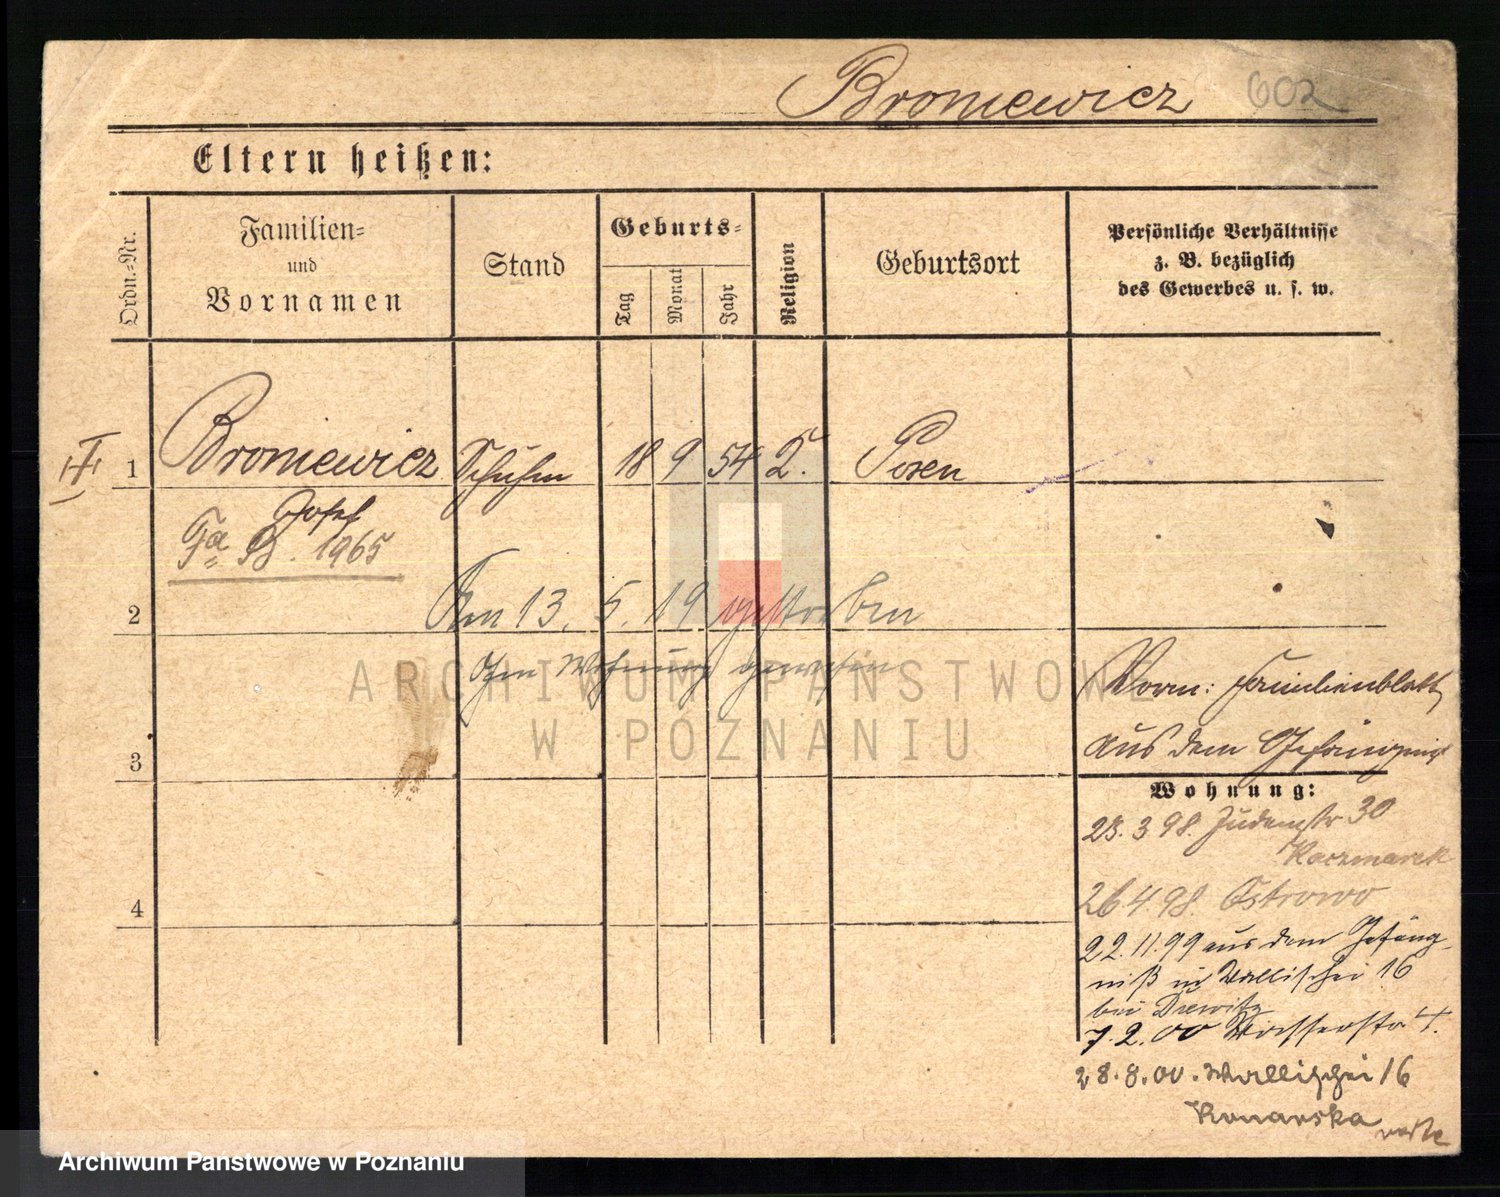 Broniewicz 602
Eltern heißen:
Ordn.-Nr.
Familien-
und
Vornamen
Stand
Geburts-
Tag
Monat
Jahr
Religion
Geburtsort
Persönliche Verhältnisse
z. B. bezüglich
des Gewerbes u. s. w.
1 Broniewicz Schuhm 18 9 54 Posen
Josef
Fa B. 1965
2 Am 13. 5. 19 gestorben
ohne Wohnung gewesen
ARCHIWUM PAŃSTWOWE
W POZNANIU
Vorm: Familienblatt
aus dem Gefängnis
3
Wohnung:
23. 3 98. Judenstr 30
Kaczmarek
26 4. 98. Ostrowo
4
22. 11. 99 aus dem Gefäng-
niß in Wallischei 16
bei Drewitz
7. 2. 00 Wasserstr 4.
28. 8. 00. Wallischei 16
Konarska
Archiwum Państwowe w Poznaniu